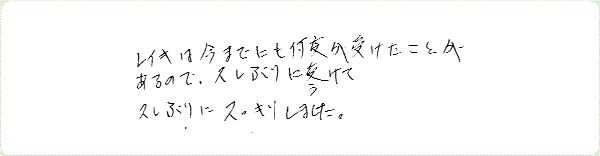 レイキは今までにも何度か受けたことが
あるので、久しぶりに受けて
久しぶりにスッキリしました。